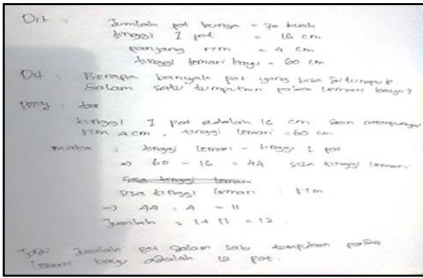 Dit : Jumlah pot bunga = 70 buah
tinggi 1 pot = 16 cm
panjang rim = 4 cm
tinggi lemari kayu = 60 cm
Dit : Berapa banyak pot yang bisa ditumpuk
dalam satu tumpukan pada lemari kayu?
Peny :
tinggi 1 pot adalah 16 cm dan mempunyai
rim 4 cm, tinggi lemari = 60 cm
maka : tinggi lemari - tinggi 1 pot
=> 60 - 16 = 44 sisa tinggi lemari.
sisa tinggi lemari : rim
=> 44 : 4 = 11
Jumlah = 1 + 11 = 12
Jadi Jumlah pot dalam satu tumpukan pada
lemari kayu adalah 12 pot.